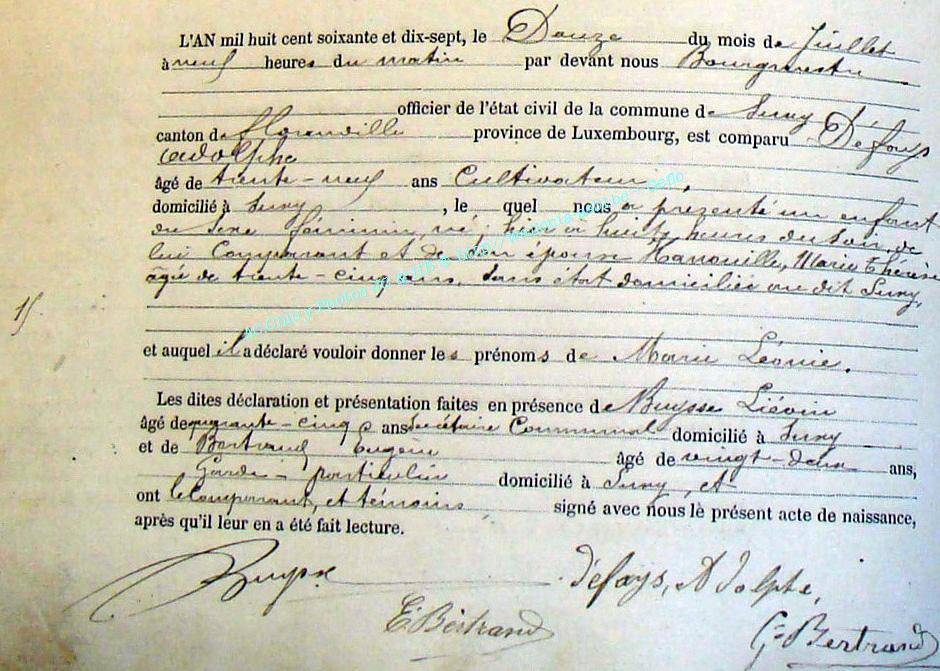 L'AN mil huit cent soixante et dix-sept, le Douze du mois de Juillet
à neuf heures du matin par devant nous Bourgmestre
officier de l'état civil de la commune de Suxy
canton de Florenville province de Luxembourg, est comparu Défays
Adolphe
âgé de trente-neuf ans Cultivateur,
domicilié à Suxy, le quel nous a présenté un enfant
du sexe féminin, né hier à huit heures du soir, de
lui Comparant et de son épouse Hanouille, Marie Thérèse
âgée de trente-cinq ans, sans état domiciliée au dit Suxy,
15.
et auquel il a déclaré vouloir donner les prénoms de Marie Léonie.
Les dites déclaration et présentation faites en présence de Buysse Liévin
âgé de quarante-cinq ans Secrétaire Communal domicilié à Suxy
et de Bertrand Eugène âgé de vingt-deux ans,
Garde-particulier domicilié à Suxy, et
ont le Comparant, et témoins, signé avec nous le présent acte de naissance,
après qu'il leur en a été fait lecture.
Buysse Défays, Adolphe,
E Bertrand G Bertrand